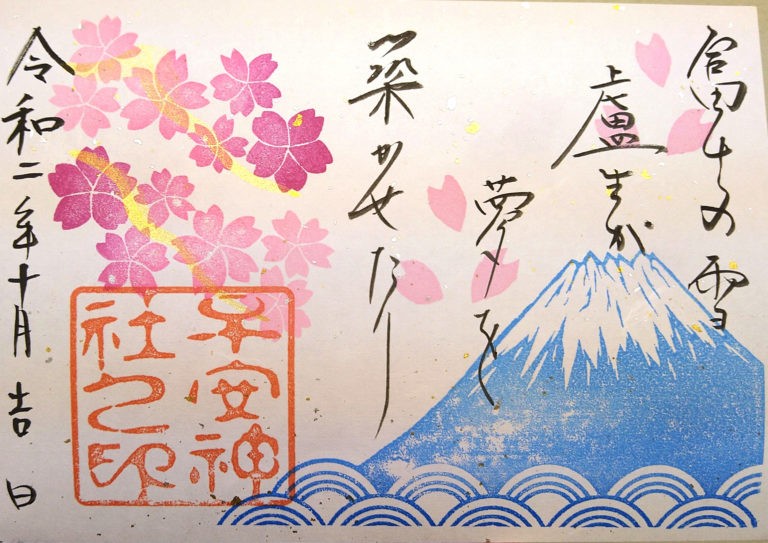 富士の雪
盧生が
夢を
築かせたり
令和二年十月吉日
子安神
社之印